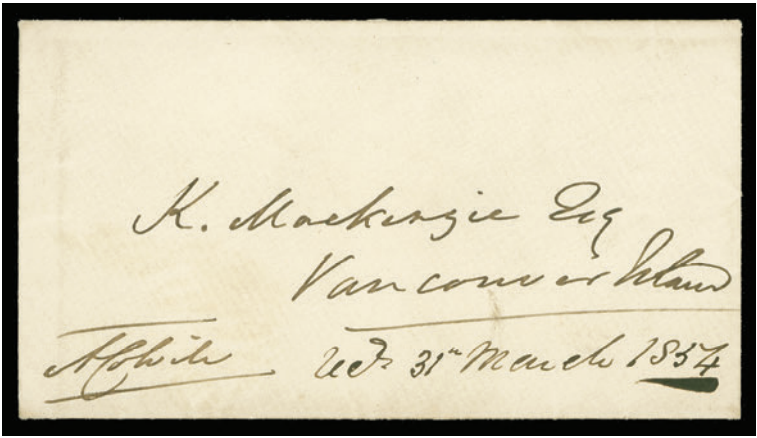 K. Mackenzie Esq
Vancouver Island
AColvile Recd 31st March 1854